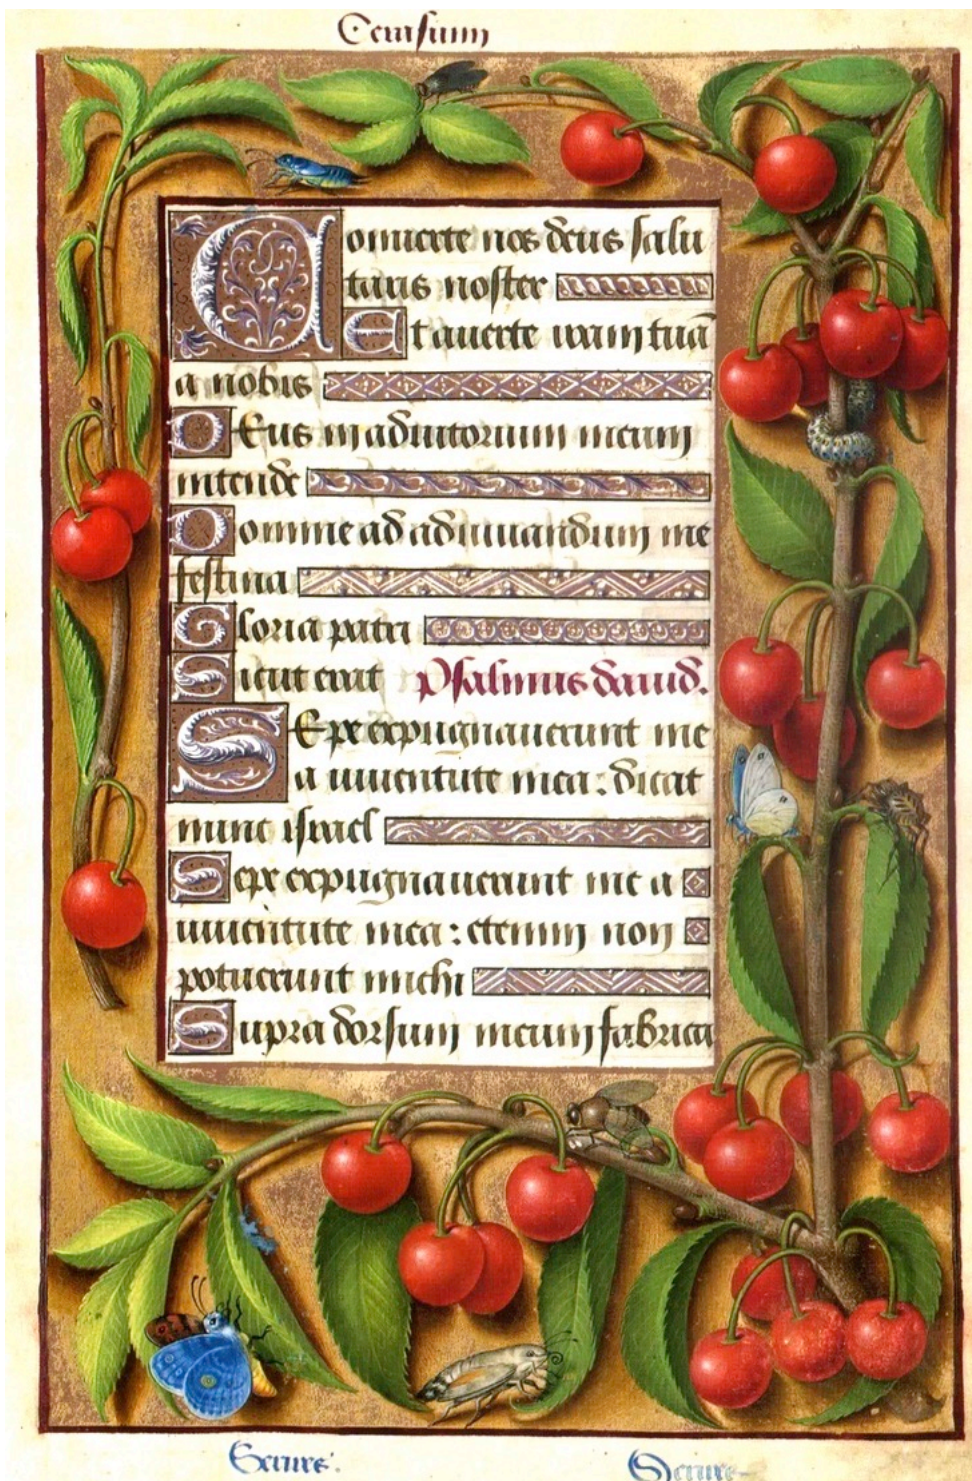 Cerasum
Conuerte nos deus salu
taris noster
Et auerte iram tuã
a nobis
Deus in adiutorium meum
intende
Domine ad adiuuandum me
festina
Gloria patri
Sicut erat Psalmus dauid.
Sepe expugnauerunt me
a iuuentute mea: dicat
nunc israel
Sepe expugnauerunt me a
iuuentute mea: etenim non
potuerunt michi
Supra dorsum meum fabrica